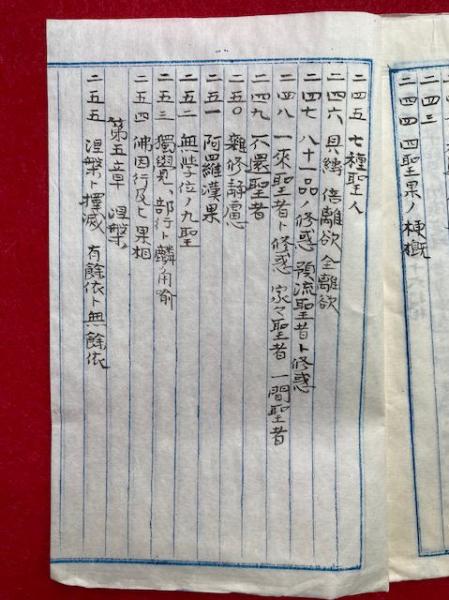 二四三
二四四 四聖果ノ梗概
二四五 七種聖人
二四六 具縛 倍離欲 全離欲
二四七 八十一品ノ修惑 預流聖者ト修惑
二四八 一来聖者ト修惑 家々聖者 一間聖者
二四九 不還聖者
二五〇 雜修静慮
二五一 阿羅漢果
二五二 無学位ノ九聖
二五三 獨覺 部行ト麟角喻
二五四 佛因行及七果相
第五章 涅槃
二五五 涅槃ト擇滅 有餘依ト無餘依